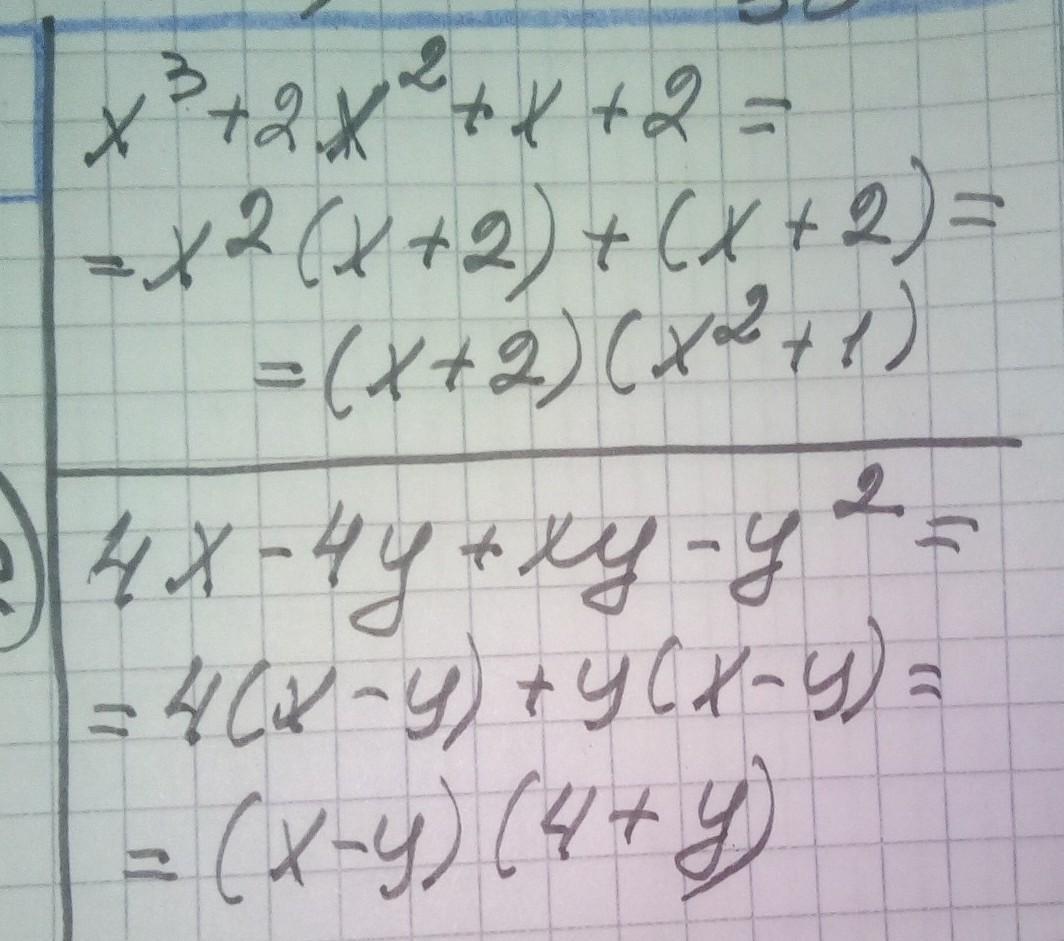 x³+2x²+x+2=
=x²(x+2)+(x+2)=
=(x+2)(x²+1)
4x-4y+xy-y²=
=4(x-y)+y(x-y)=
=(x-y)(4+y)